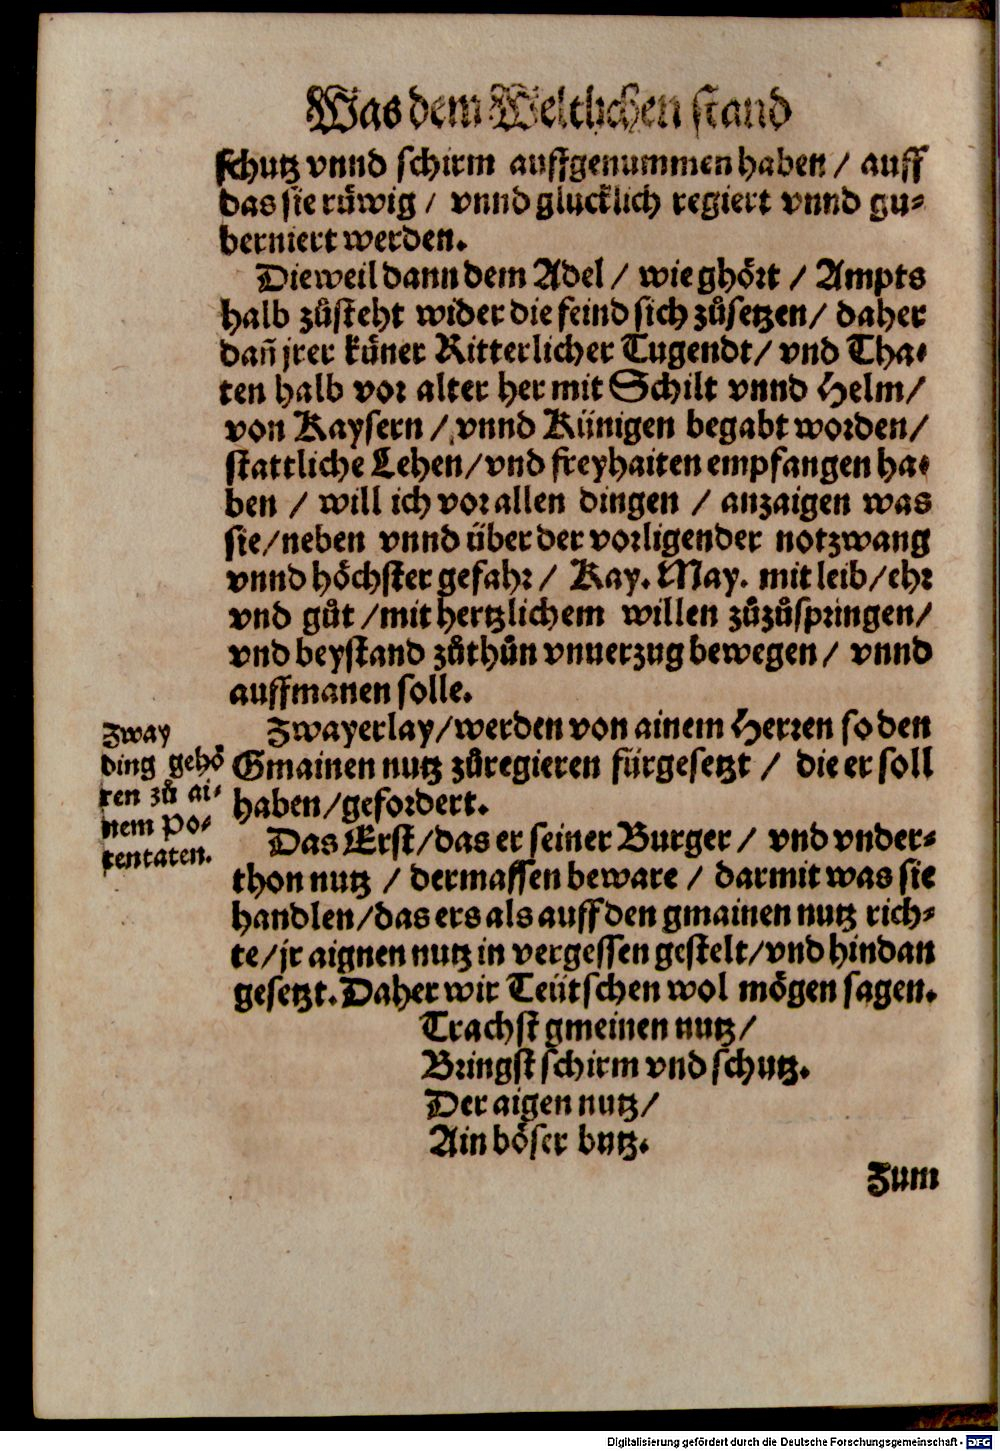 Was dem Weltlichen stand
schutz vnnd schirm auffgenummen haben / auff
das sie rüwig / vnnd glucklich regiert vnnd gu-
berniert werden.
Dieweil dann dem Adel / wie ghört / Ampts
halb zůsteht wider die feind sich zůsetzen / daher
dañ jrer küner Ritterlicher Tugendt / vnd Tha-
ten halb vor alter her mit Schilt vnnd Helm /
von Kaysern / vnnd Künigen begabt worden /
stattliche Lehen / vnd freyhaiten empfangen ha-
ben / will ich vor allen dingen / anzaigen was
sie / neben vnnd über der vorligender notzwang
vnnd höchster gefahr / Kay. May. mit leib / ehr
vnd gůt / mit hertzlichem willen zůzůspringen /
vnd beystand zůthůn vnuerzug bewegen / vnnd
auffmanen solle.
Zwayerlay / werden von ainem Herren so den
Gmainen nutz zůregieren fürgesetzt / die er soll
haben / gefordert.
Zway
ding gehö
ren zů ai-
nem Po-
tentaten.
Das Erst / das er seiner Burger / vnd vnder-
thon nutz / dermassen beware / darmit was sie
handlen / das ers als auff den gmainen nutz rich-
te / jr aignen nutz in vergessen gestelt / vnd hindan
gesetzt. Daher wir Teütschen wol mögen sagen.
Trachst gmeinen nutz /
Bringst schirm vnd schutz.
Der aigen nutz /
Ain böser butz.
Zum
Digitalisierung gefördert durch die Deutsche Forschungsgemeinschaft - DFG